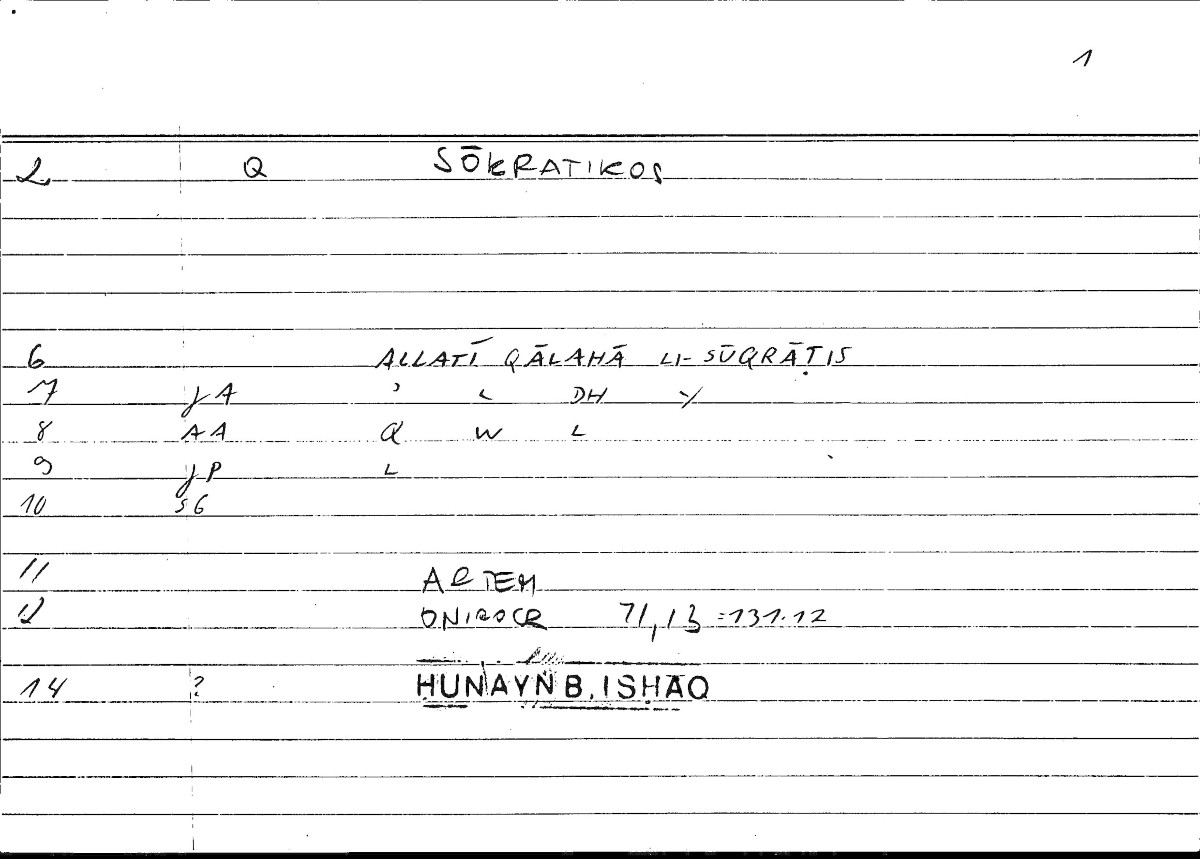 1
2 Q SŌKRATIKOS
6 ALLATĪ QĀLAHĀ LI-SŪQRĀṬIS
7 JA ʾ L DH Y
8 AA Q W L
9 JP L
10 SG
11 ARTEM
12 ONIROCR 71,13=131.12
14 ? ḤUNAYN B. ISḤĀQ